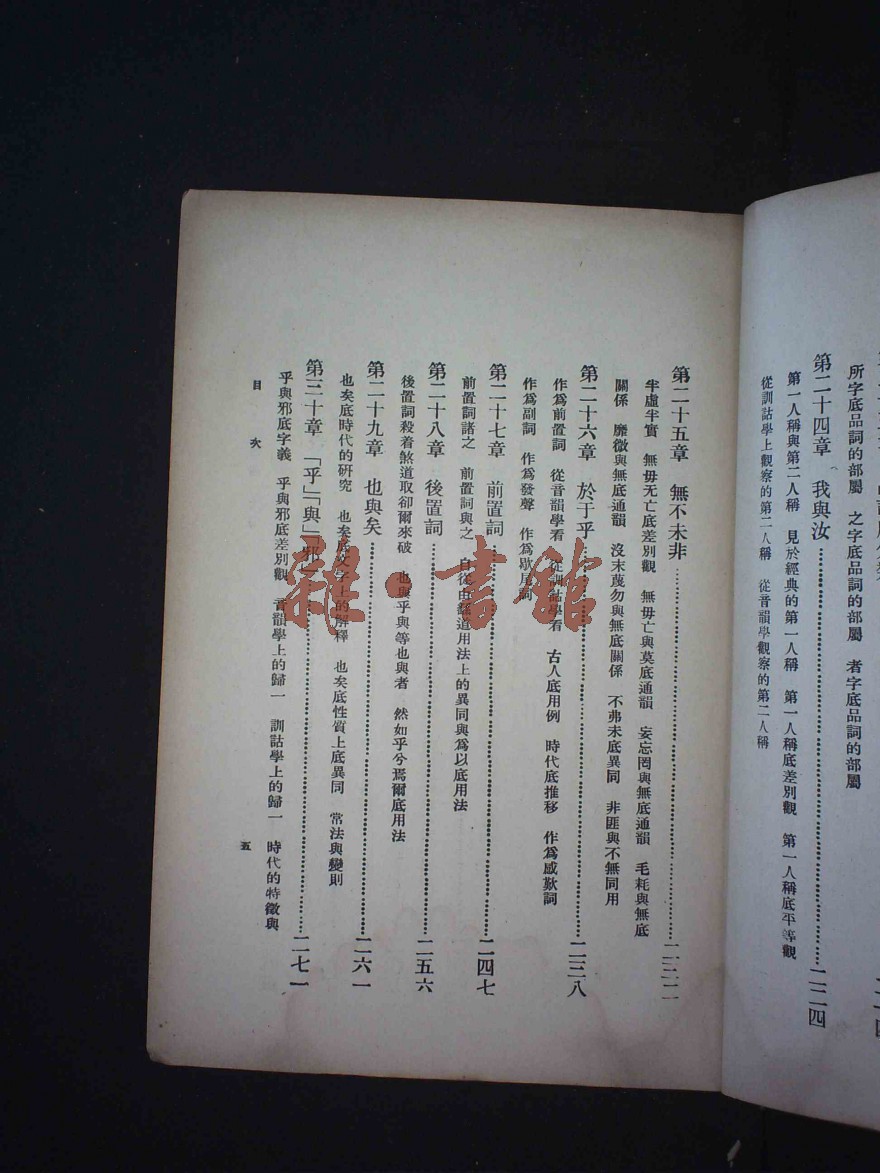 所字底品詞的部屬　之字底品詞的部屬　者字底品詞的部屬
第二十四章　我與汝……二二四
第一人稱與第二人稱　見於經典的第一人稱　第一人稱底差別觀　第一人稱底平等觀
從訓詁學上觀察的第二人稱　從音韻學觀察的第二人稱
第二十五章　無不未非……二三二
半虛半實　無毋无亡底差別觀　無毋亡與莫底通韻　妄忘罔與無底通韻　毛耗與無底
關係　靡微與無底通韻　沒末蔑勿與無底關係　不弗未底異同　非匪與不無同用
第二十六章　於于乎……二三八
作爲前置詞　從音韻學看　從訓詁學看　古人底用例　時代底推移　作爲感歎詞
作爲副詞　作爲發聲　作爲歇尾詞
第二十七章　前置詞……二四七
前置詞諸之　前置詞與之　自從由繇道用法上的異同與爲以底用法
第二十八章　後置詞……二五六
後置詞殺着煞道取卻爾來破　也與乎與等也與者　然如乎兮焉爾底用法
第二十九章　也與矣……二六一
也矣底時代的研究　也矣底文字上的解釋　也矣底性質上底異同　常法與變則
第三十章　「乎」「與」「邪」……二七一
乎與邪底字義　乎與邪底差別觀　音韻學上的歸一　訓詁學上的歸一　時代的特徵與
目次　五
雜·書館